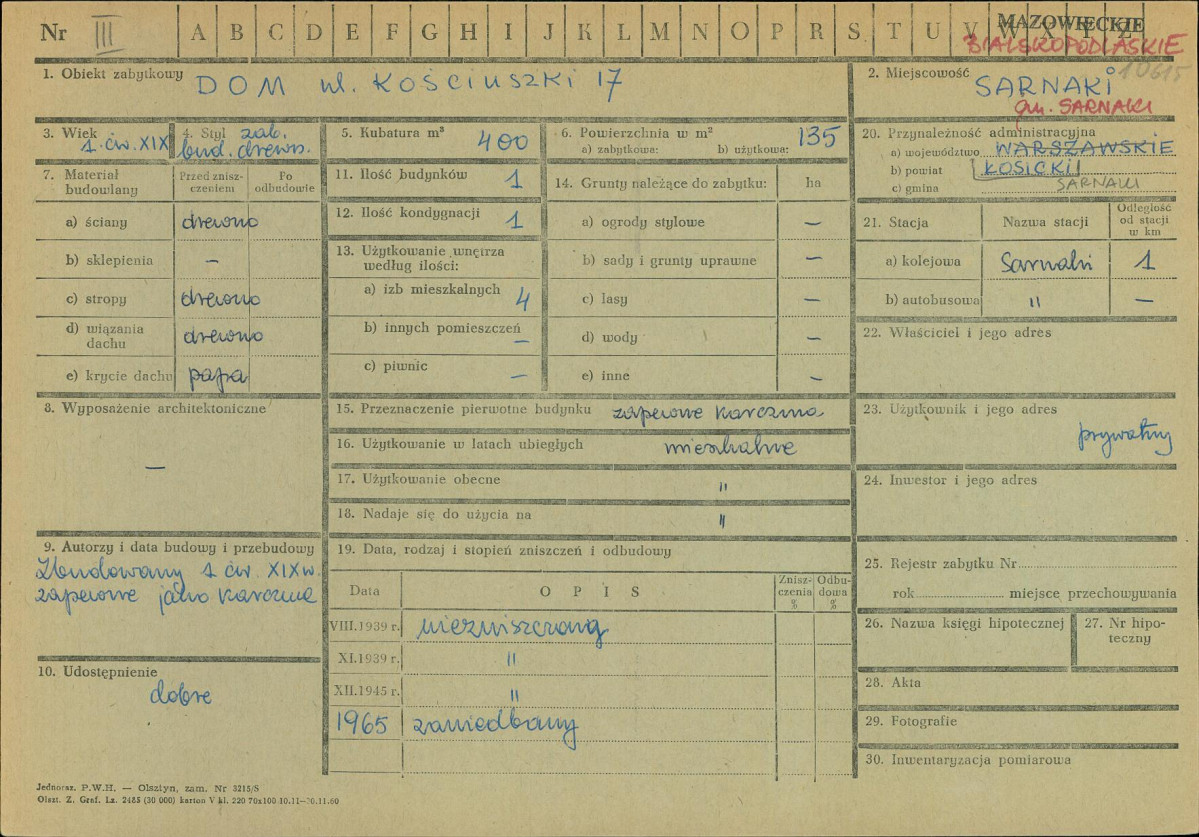 Nr III A B C D E F G H I J K L M N O P R S T U V W X Y Z
MAZOWIECKIE
BIALSKOPODLASKIE
10615
1. Obiekt zabytkowy DOM ul. KOŚCIUSZKI 17
2. Miejscowość SARNAKI
gm. SARNAKI
3. Wiek 1. ćw. XIX
4. Styl zab. bud. drewn.
5. Kubatura m³ 400
6. Powierzchnia w m²
a) zabytkowa: b) użytkowa: 135
7. Materiał budowlany
Przed zniszczeniem
Po odbudowie
a) ściany drewno
b) sklepienia –
c) stropy drewno
d) wiązania dachu drewno
e) krycie dachu papa
8. Wyposażenie architektoniczne
–
9. Autorzy i data budowy i przebudowy
Zbudowany 1 ćw. XIX w.
zapewne jako karczma
10. Udostępnienie
dobre
11. Ilość budynków 1
12. Ilość kondygnacji 1
13. Użytkowanie wnętrza
według ilości:
a) izb mieszkalnych 4
b) innych pomieszczeń –
c) piwnic –
14. Grunty należące do zabytku: ha
a) ogrody stylowe –
b) sady i grunty uprawne –
c) lasy –
d) wody –
e) inne –
15. Przeznaczenie pierwotne budynku zapewne karczma
16. Użytkowanie w latach ubiegłych mieszkalne
17. Użytkowanie obecne "
18. Nadaje się do użycia na "
19. Data, rodzaj i stopień zniszczeń i odbudowy
Data O P I S Zniszczenia % Odbudowa %
VIII.1939 r. niezniszczony
XI.1939 r. "
XII.1945 r. "
1965 zaniedbany
20. Przynależność administracyjna
a) województwo WARSZAWSKIE
b) powiat ŁOSICKI
c) gmina SARNAKI
21. Stacja Nazwa stacji Odległość od stacji w km
a) kolejowa Sarnaki 1
b) autobusowa " –
22. Właściciel i jego adres
23. Użytkownik i jego adres
prywatny
24. Inwestor i jego adres
25. Rejestr zabytku Nr
rok miejsce przechowywania
26. Nazwa księgi hipotecznej
27. Nr hipoteczny
28. Akta
29. Fotografie
30. Inwentaryzacja pomiarowa
Jednoraz. P.W.H. — Olsztyn, zam. Nr 3215/S
Olszt. Z. Graf. Lz. 2485 (30 000) karton V kl. 220 70x100 10.11—30.11.60